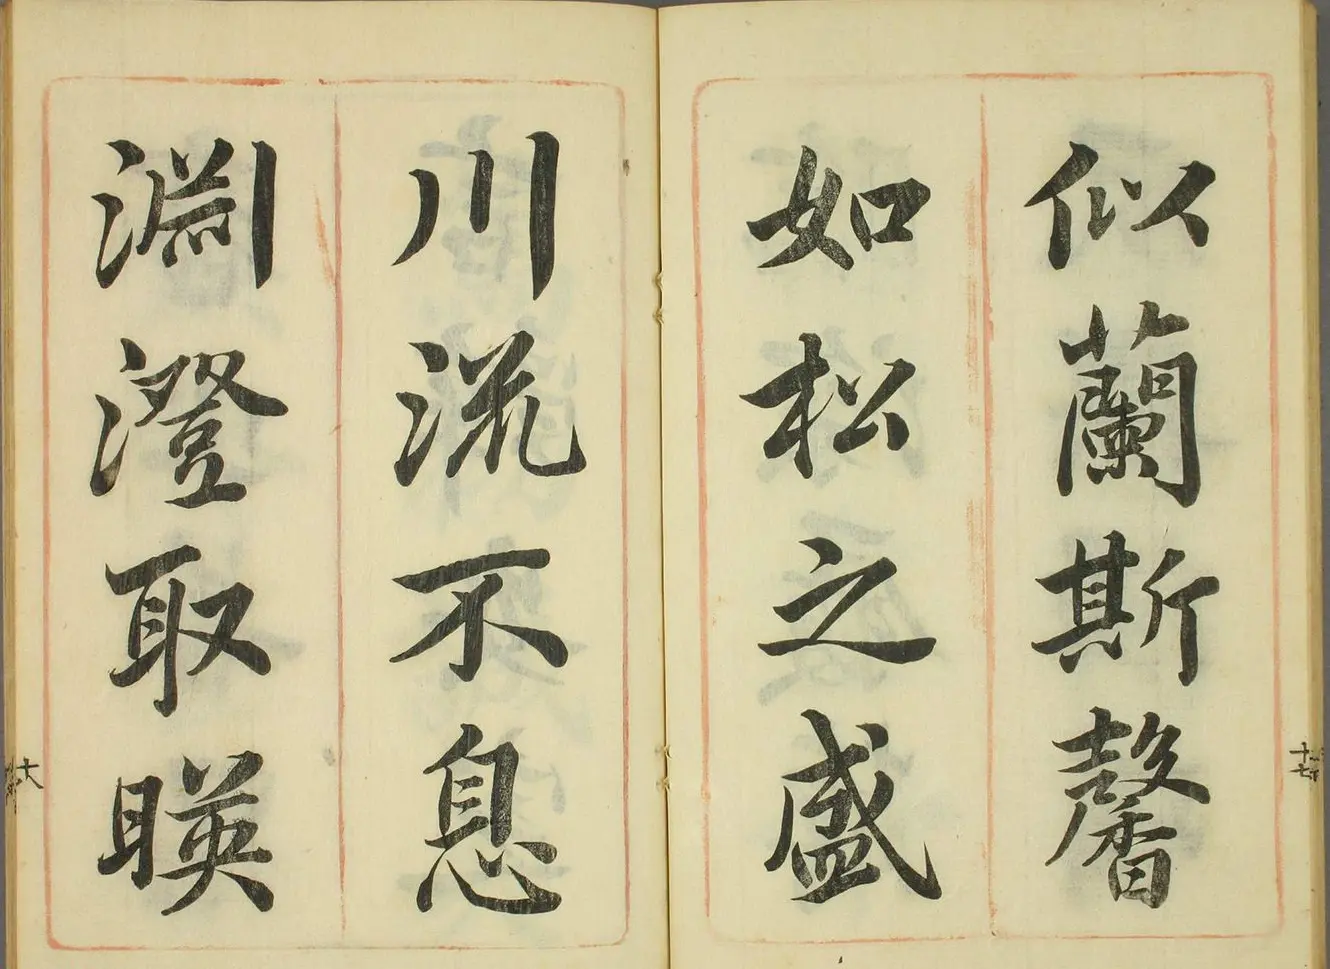 似蘭斯馨
如松之盛
川流不息
淵澄取暎
十七
十八